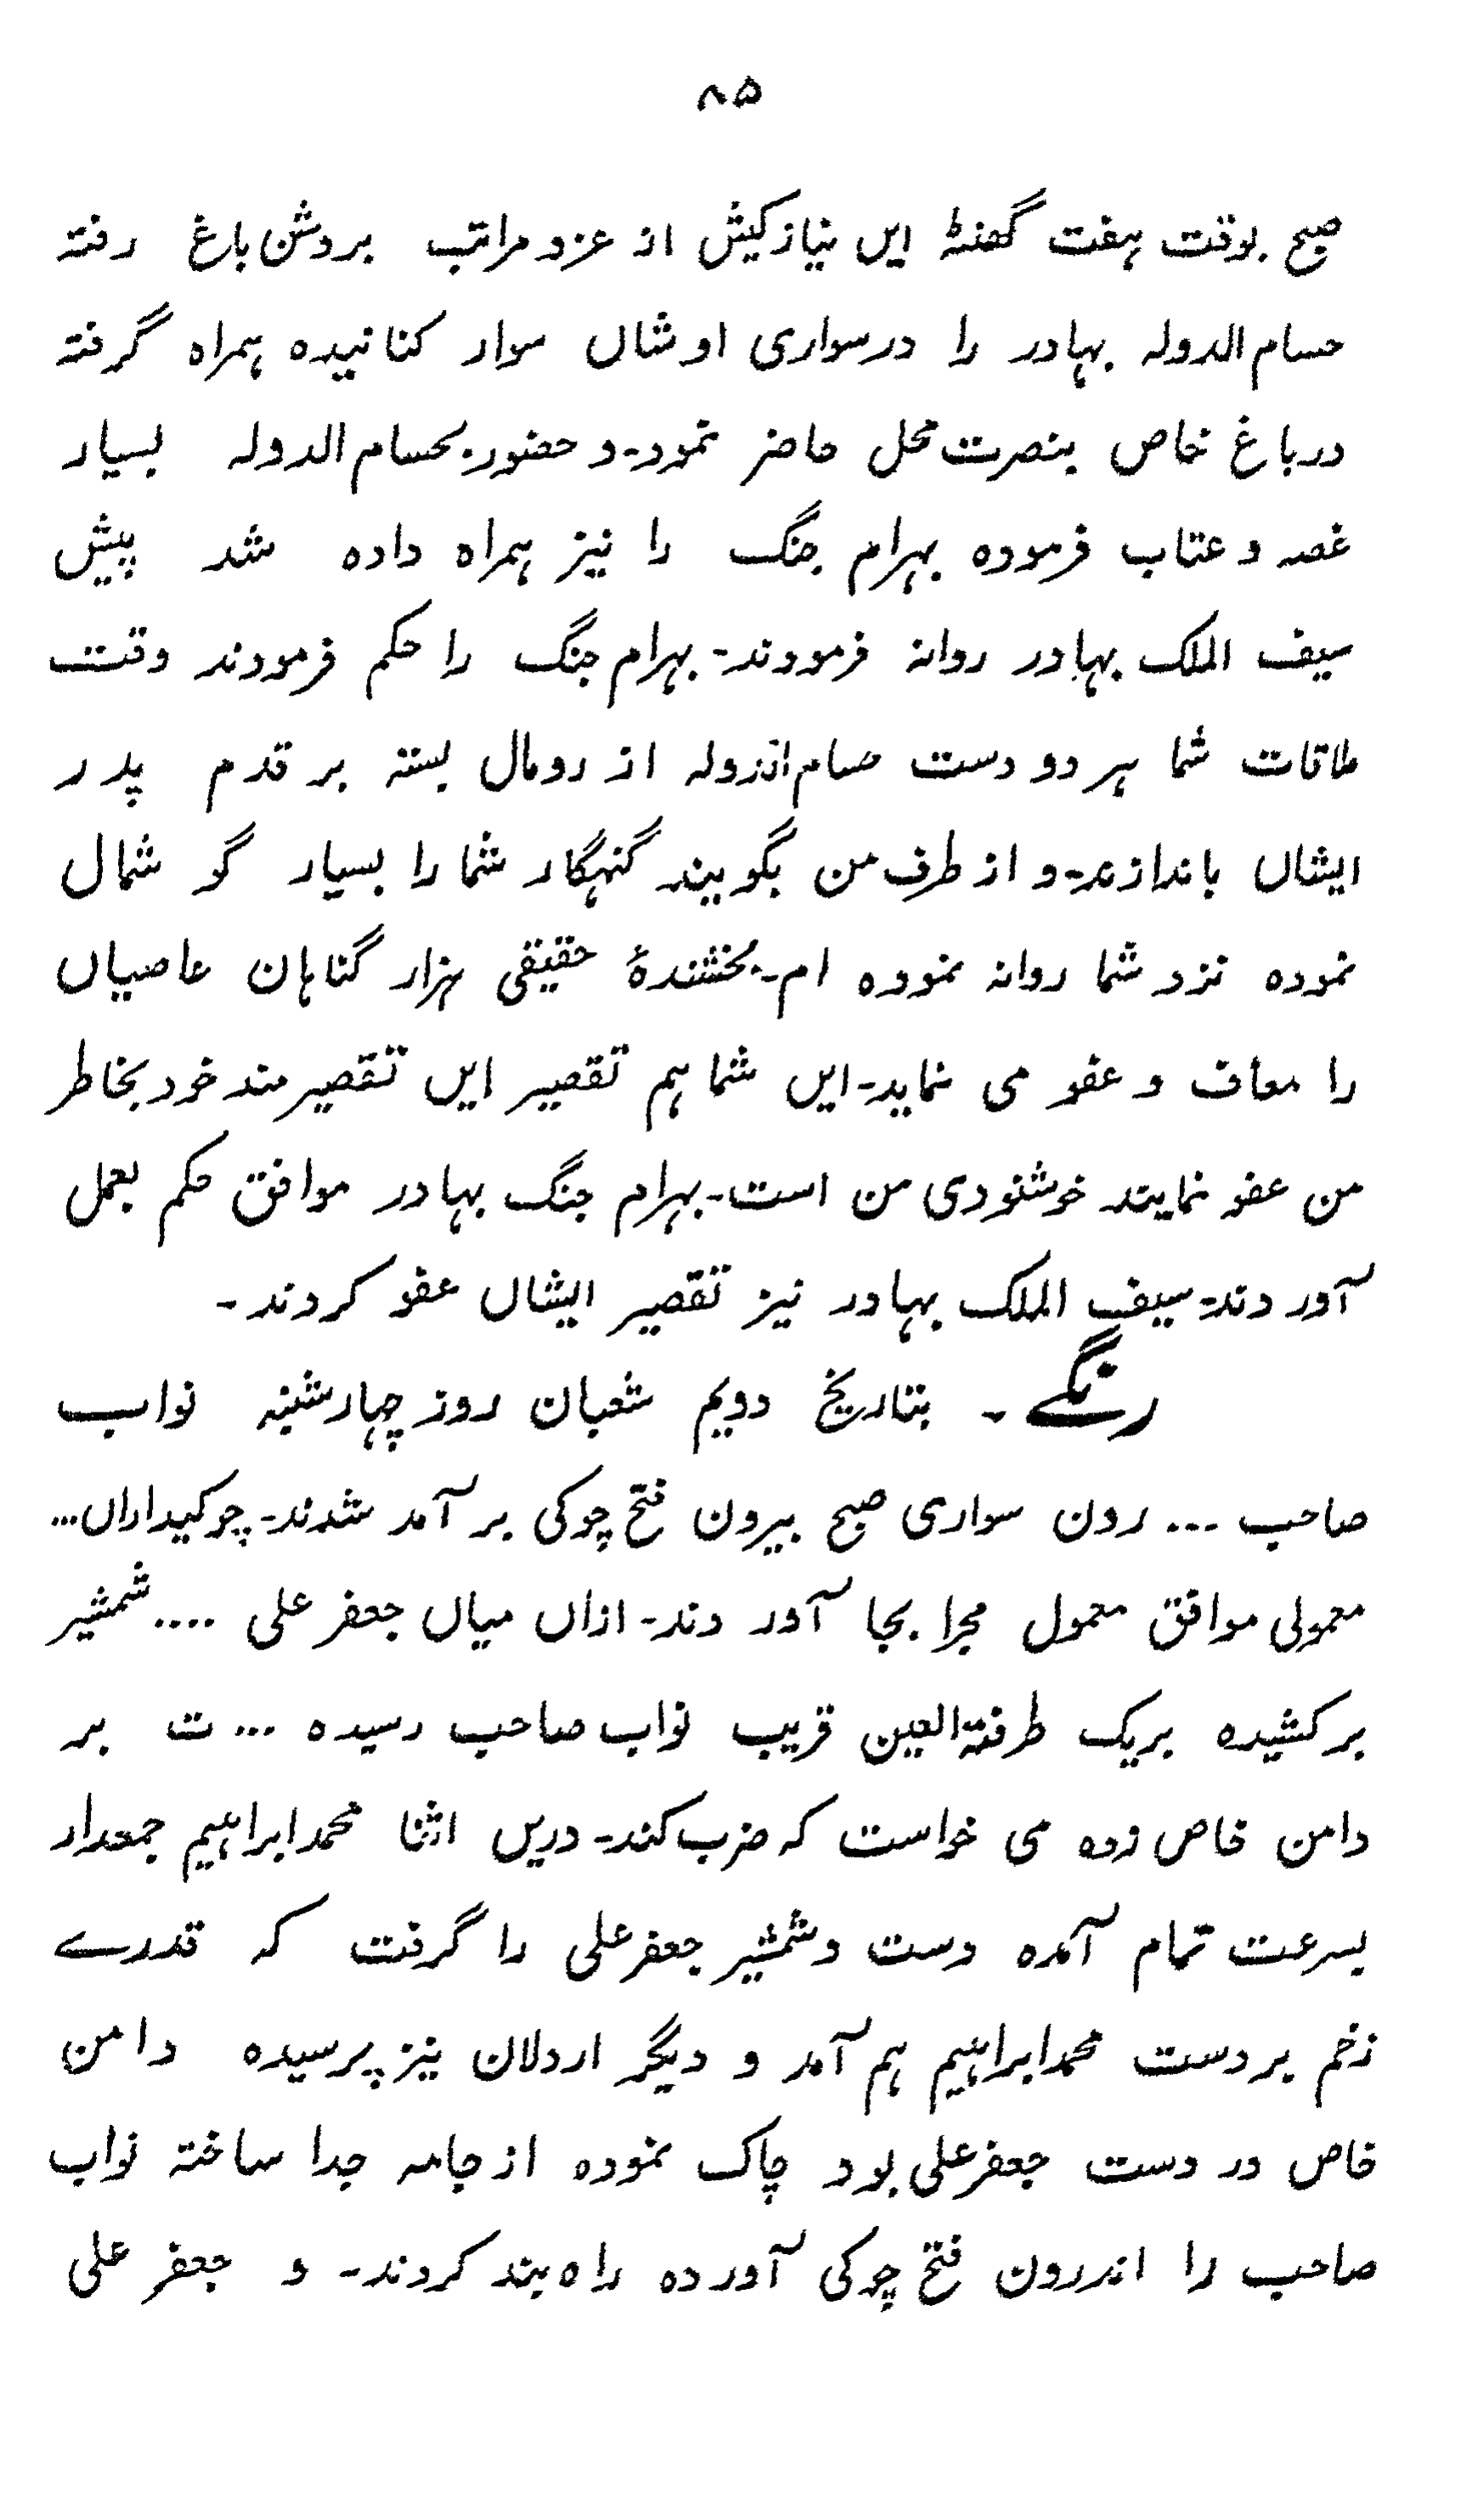 ۸۵
صبح بوقت ہفت گھنٹہ ایں نیازکیش از عزو مراتب بروشن باغ رفتہ
حسام الدولہ بہادر را درسواری اوشاں سوار کنانیدہ ہمراہ گرفتہ
درباغ خاص بنصرت محل حاضر نمود۔ و حضور بحسام الدولہ بسیار
غصہ و عتاب فرمودہ بہرام جنگ را نیز ہمراہ دادہ شد پیش
سیف الملک بہادر روانہ فرمودند۔ بہرام جنگ را حکم فرمودند وقت
ملاقات شما ہر دو دست حسام الدولہ از رومال بستہ بر قدم پدر
ایشاں باندازند۔ و از طرف من بگویند گنہگار شما را بسیار گو شمال
نمودہ نزد شما روانہ نمودہ ام۔ بخشندۂ حقیقی ہزار گناہان عاصیاں
را معاف و عفو می نماید۔ ایں شما ہم تقصیر ایں تقصیر مند خود بخاطر
من عفو نمایند خوشنودی من است۔ بہرام جنگ بہادر موافق حکم بعمل
آور دند۔ سیف الملک بہادر نیز تقصیر ایشاں عفو کردند۔
رنگے ۔ بتاریخ دویم شعبان روز چہارشنبہ نواب
صاحب ... رون سواری صبح بیرون فتح چوکی بر آمد شدند۔ چوکیداراں...
معمولی موافق معمول مجرا بجا آور دند۔ ازاں میاں جعفر علی .... شمشیر
بر کشیدہ بریک طرفتہ العین قریب نواب صاحب رسیدہ ...ت بر
دامن خاص زدہ می خواست کہ ضرب کند۔ دریں اثنا محمد ابراہیم جمعدار
بسرعت تمام آمدہ دست و شمشیر جعفر علی را گرفت کہ قدرے
زخم بر دست محمد ابراہیم ہم آمد و دیگر اردلان نیز پرسیدہ دامن
خاص در دست جعفر علی بود چاک نمودہ از جامہ جدا ساختہ نواب
صاحب را اندرون فتح چوکی آور دہ راہ بند کردند۔ و جعفر علی